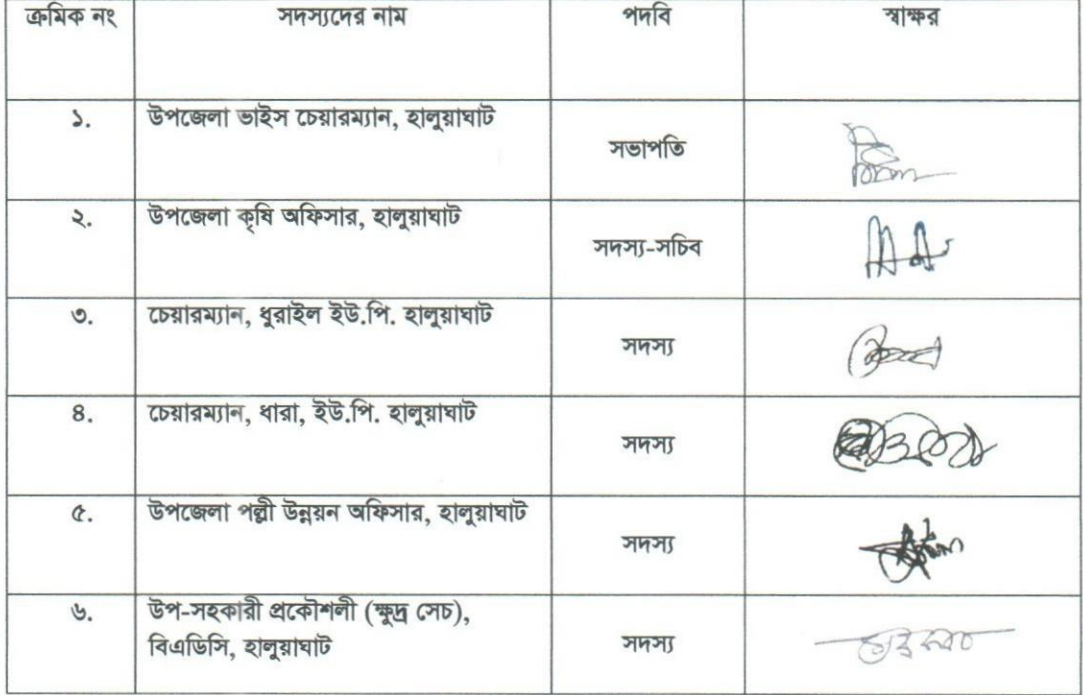 ক্রমিক নং সদস্যদের নাম পদবি স্বাক্ষর
১. উপজেলা ভাইস চেয়ারম্যান, হালুয়াঘাট সভাপতি
২. উপজেলা কৃষি অফিসার, হালুয়াঘাট সদস্য-সচিব
৩. চেয়ারম্যান, ধুরাইল ইউ.পি. হালুয়াঘাট সদস্য
৪. চেয়ারম্যান, ধারা, ইউ.পি. হালুয়াঘাট সদস্য
৫. উপজেলা পল্লী উন্নয়ন অফিসার, হালুয়াঘাট সদস্য
৬. উপ-সহকারী প্রকৌশলী (ক্ষুদ্র সেচ),
বিএডিসি, হালুয়াঘাট সদস্য